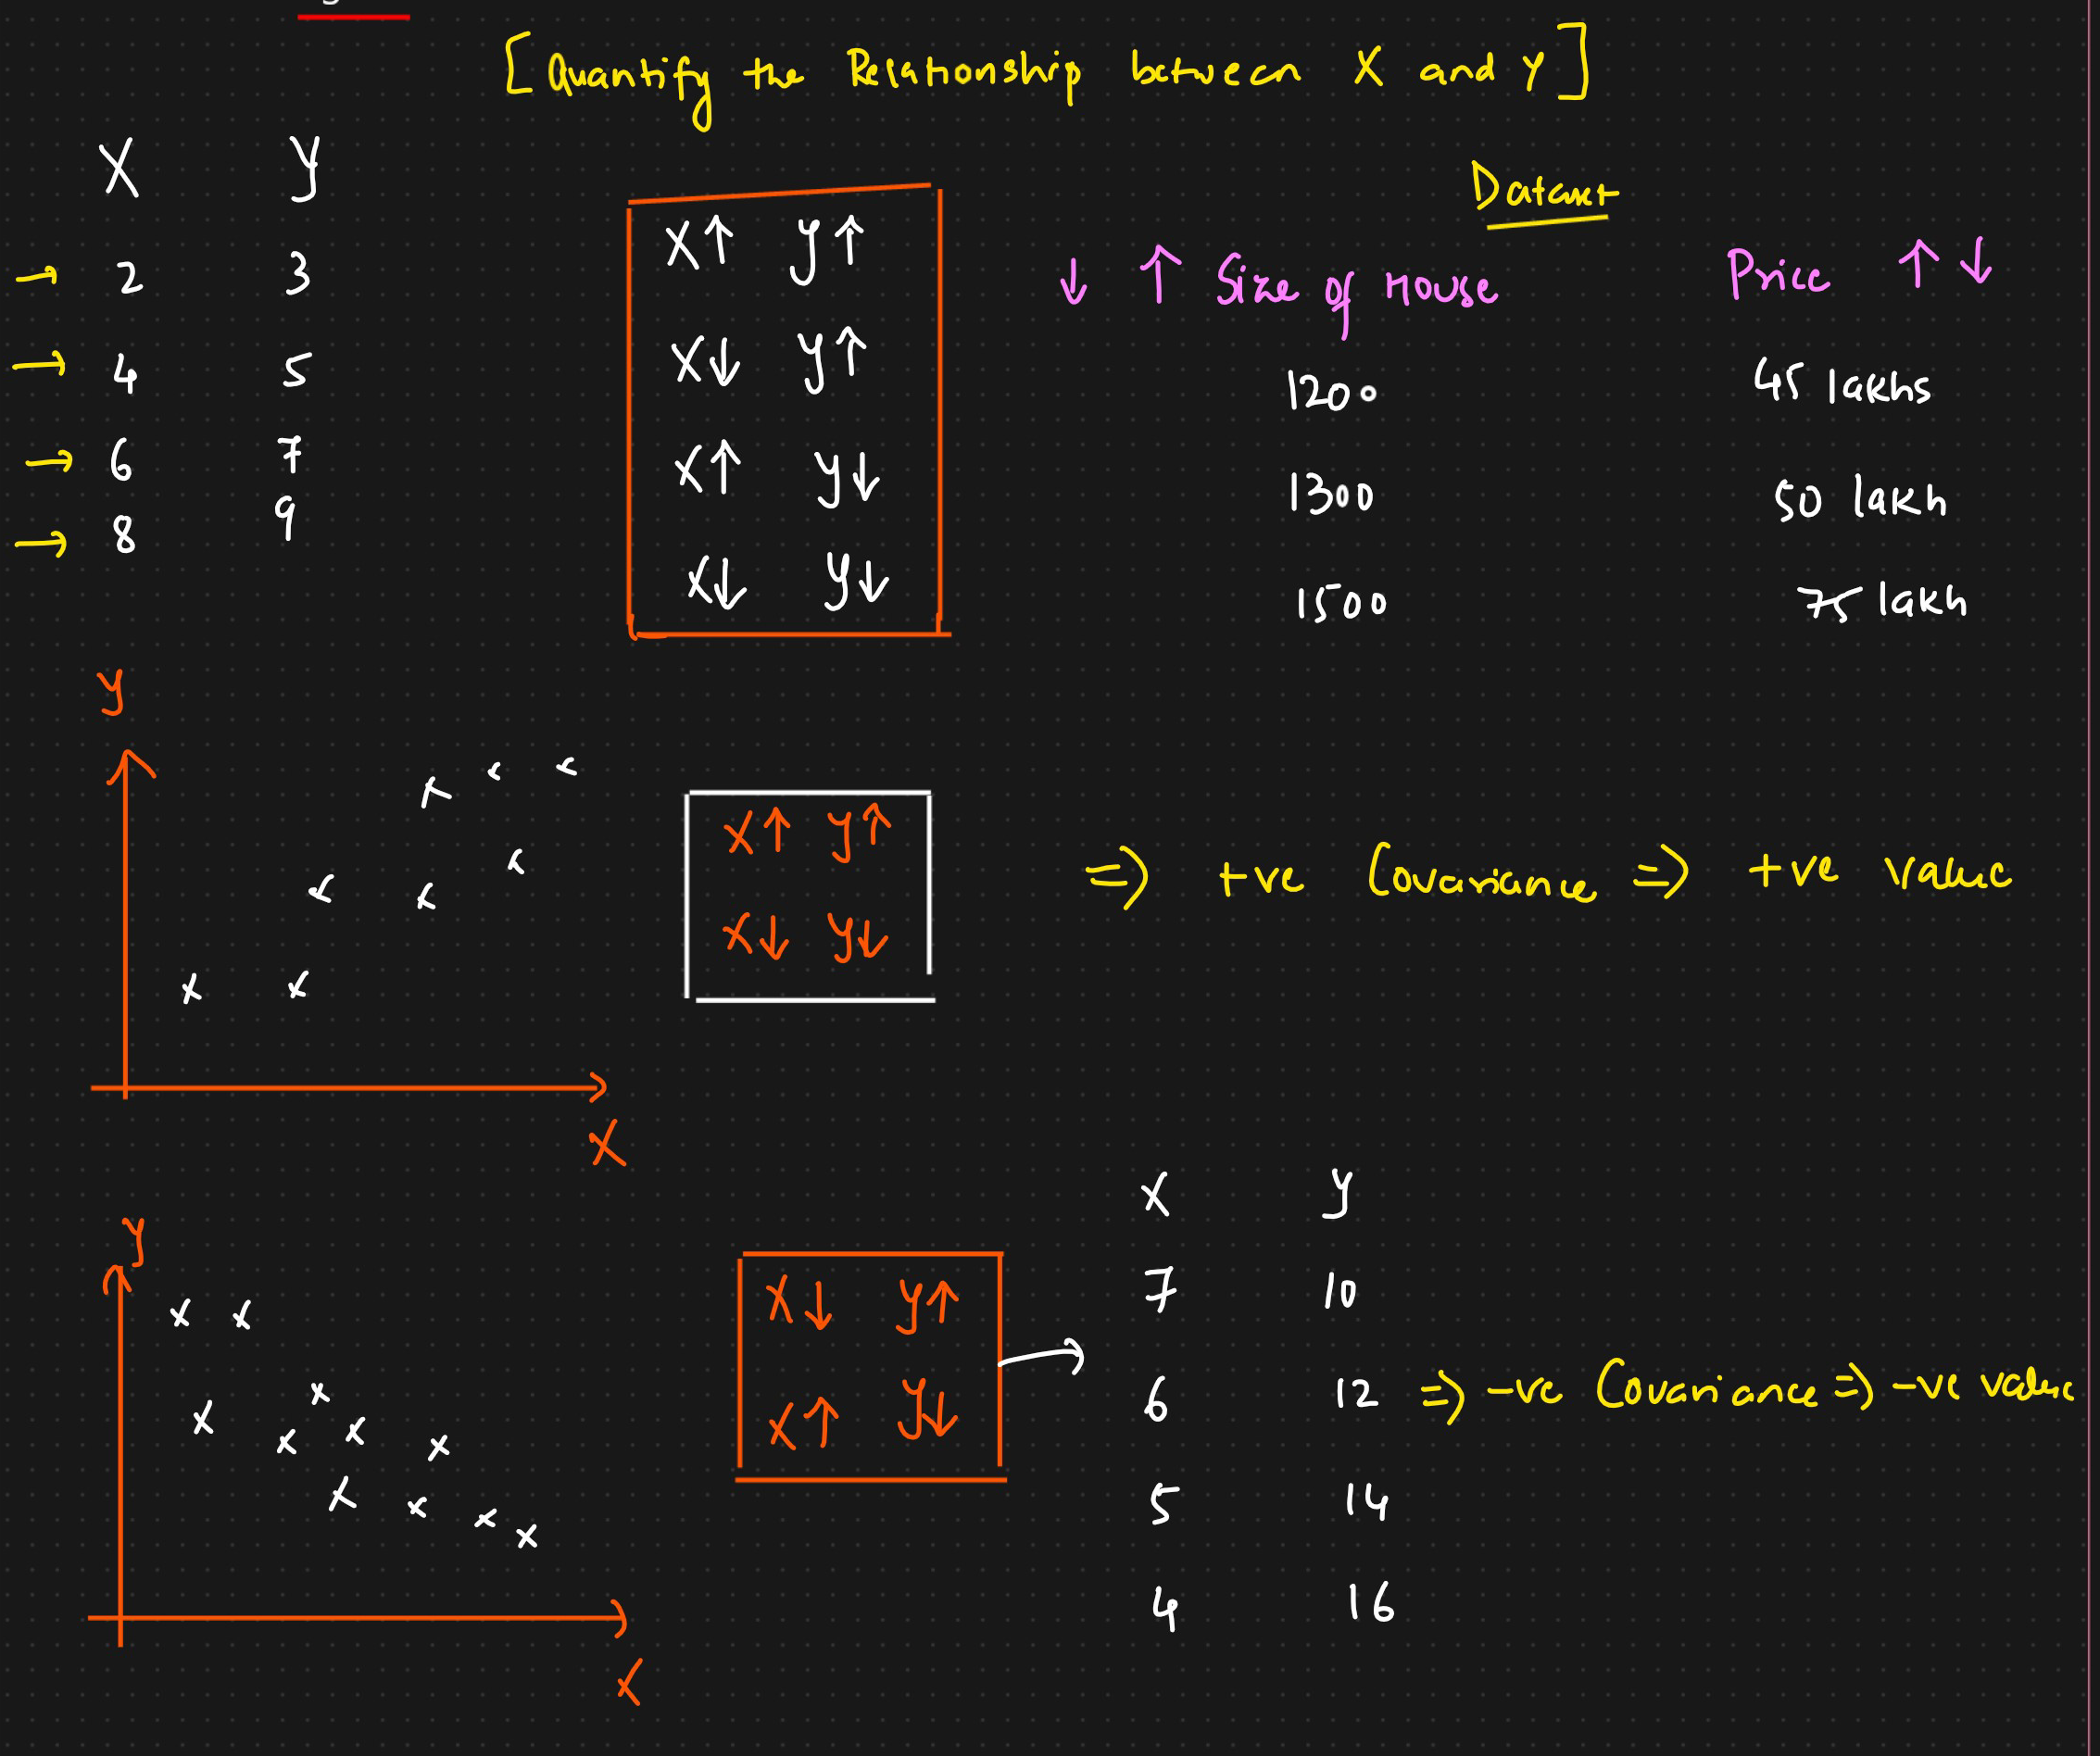 [Quantify the Relationship between X and Y]
X Y
→ 2 3
→ 4 5
→ 6 7
→ 8 9
X↑ y↑
X↓ y↑
X↑ y↓
X↓ y↓
Dataset
↓ ↑ Size of House Price ↑ ↓
1200 45 lakhs
1300 50 lakh
1500 75 lakh
y
X
X↑ y↑
X↓ y↓
⇒ +ve Covariance ⇒ +ve value
y
X
X↓ y↑
X↑ y↓
X y
7 10
6 12 ⇒ -ve Covariance ⇒ -ve value
5 14
4 16